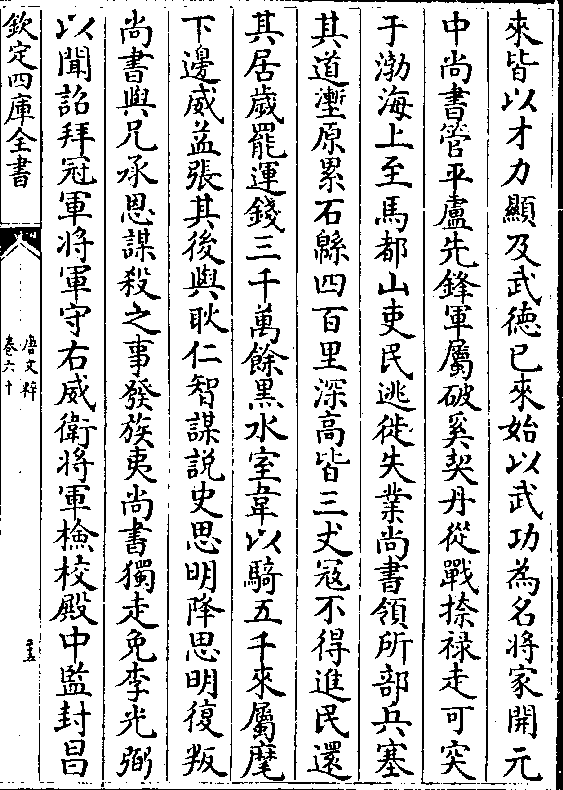 來皆以才力顯及武德已來始以武功為名將家開元
中尚書管平盧先鋒軍屬破奚契丹從戰捺禄走可突
于渤海上至馬都山吏民逃徙失業尚書領所部兵塞
其道壍原累石緜四百里深高皆三丈冦不得進民還
其居歲罷運錢三千萬餘黒水室韋以騎五千來屬麾
下邊威益張其後與耿仁智謀說史思明降思明復叛
尚書與兄承恩謀殺之事發族夷尚書獨走免李光弼
以聞詔拜冠軍將軍守右威衛將軍檢校殿中監封昌
欽定四庫全書
唐文粹
卷六十
二十五